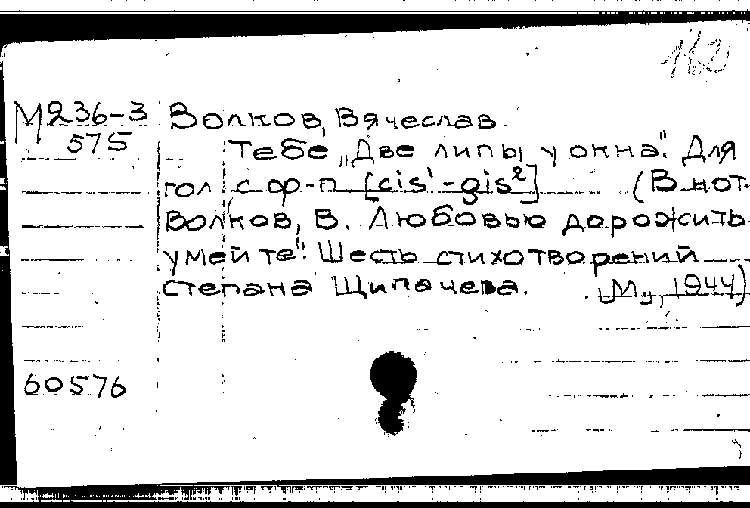 162
М236-3 Волков, Вячеслав.
575 Тебе „Две липы у окна". Для
гол с ф-п [cis¹-gis²] (В нот.
Волков, В. Любовью дорожить
умейте". Шесть стихотворений
Степана Щипачева. М., 1944)
60576